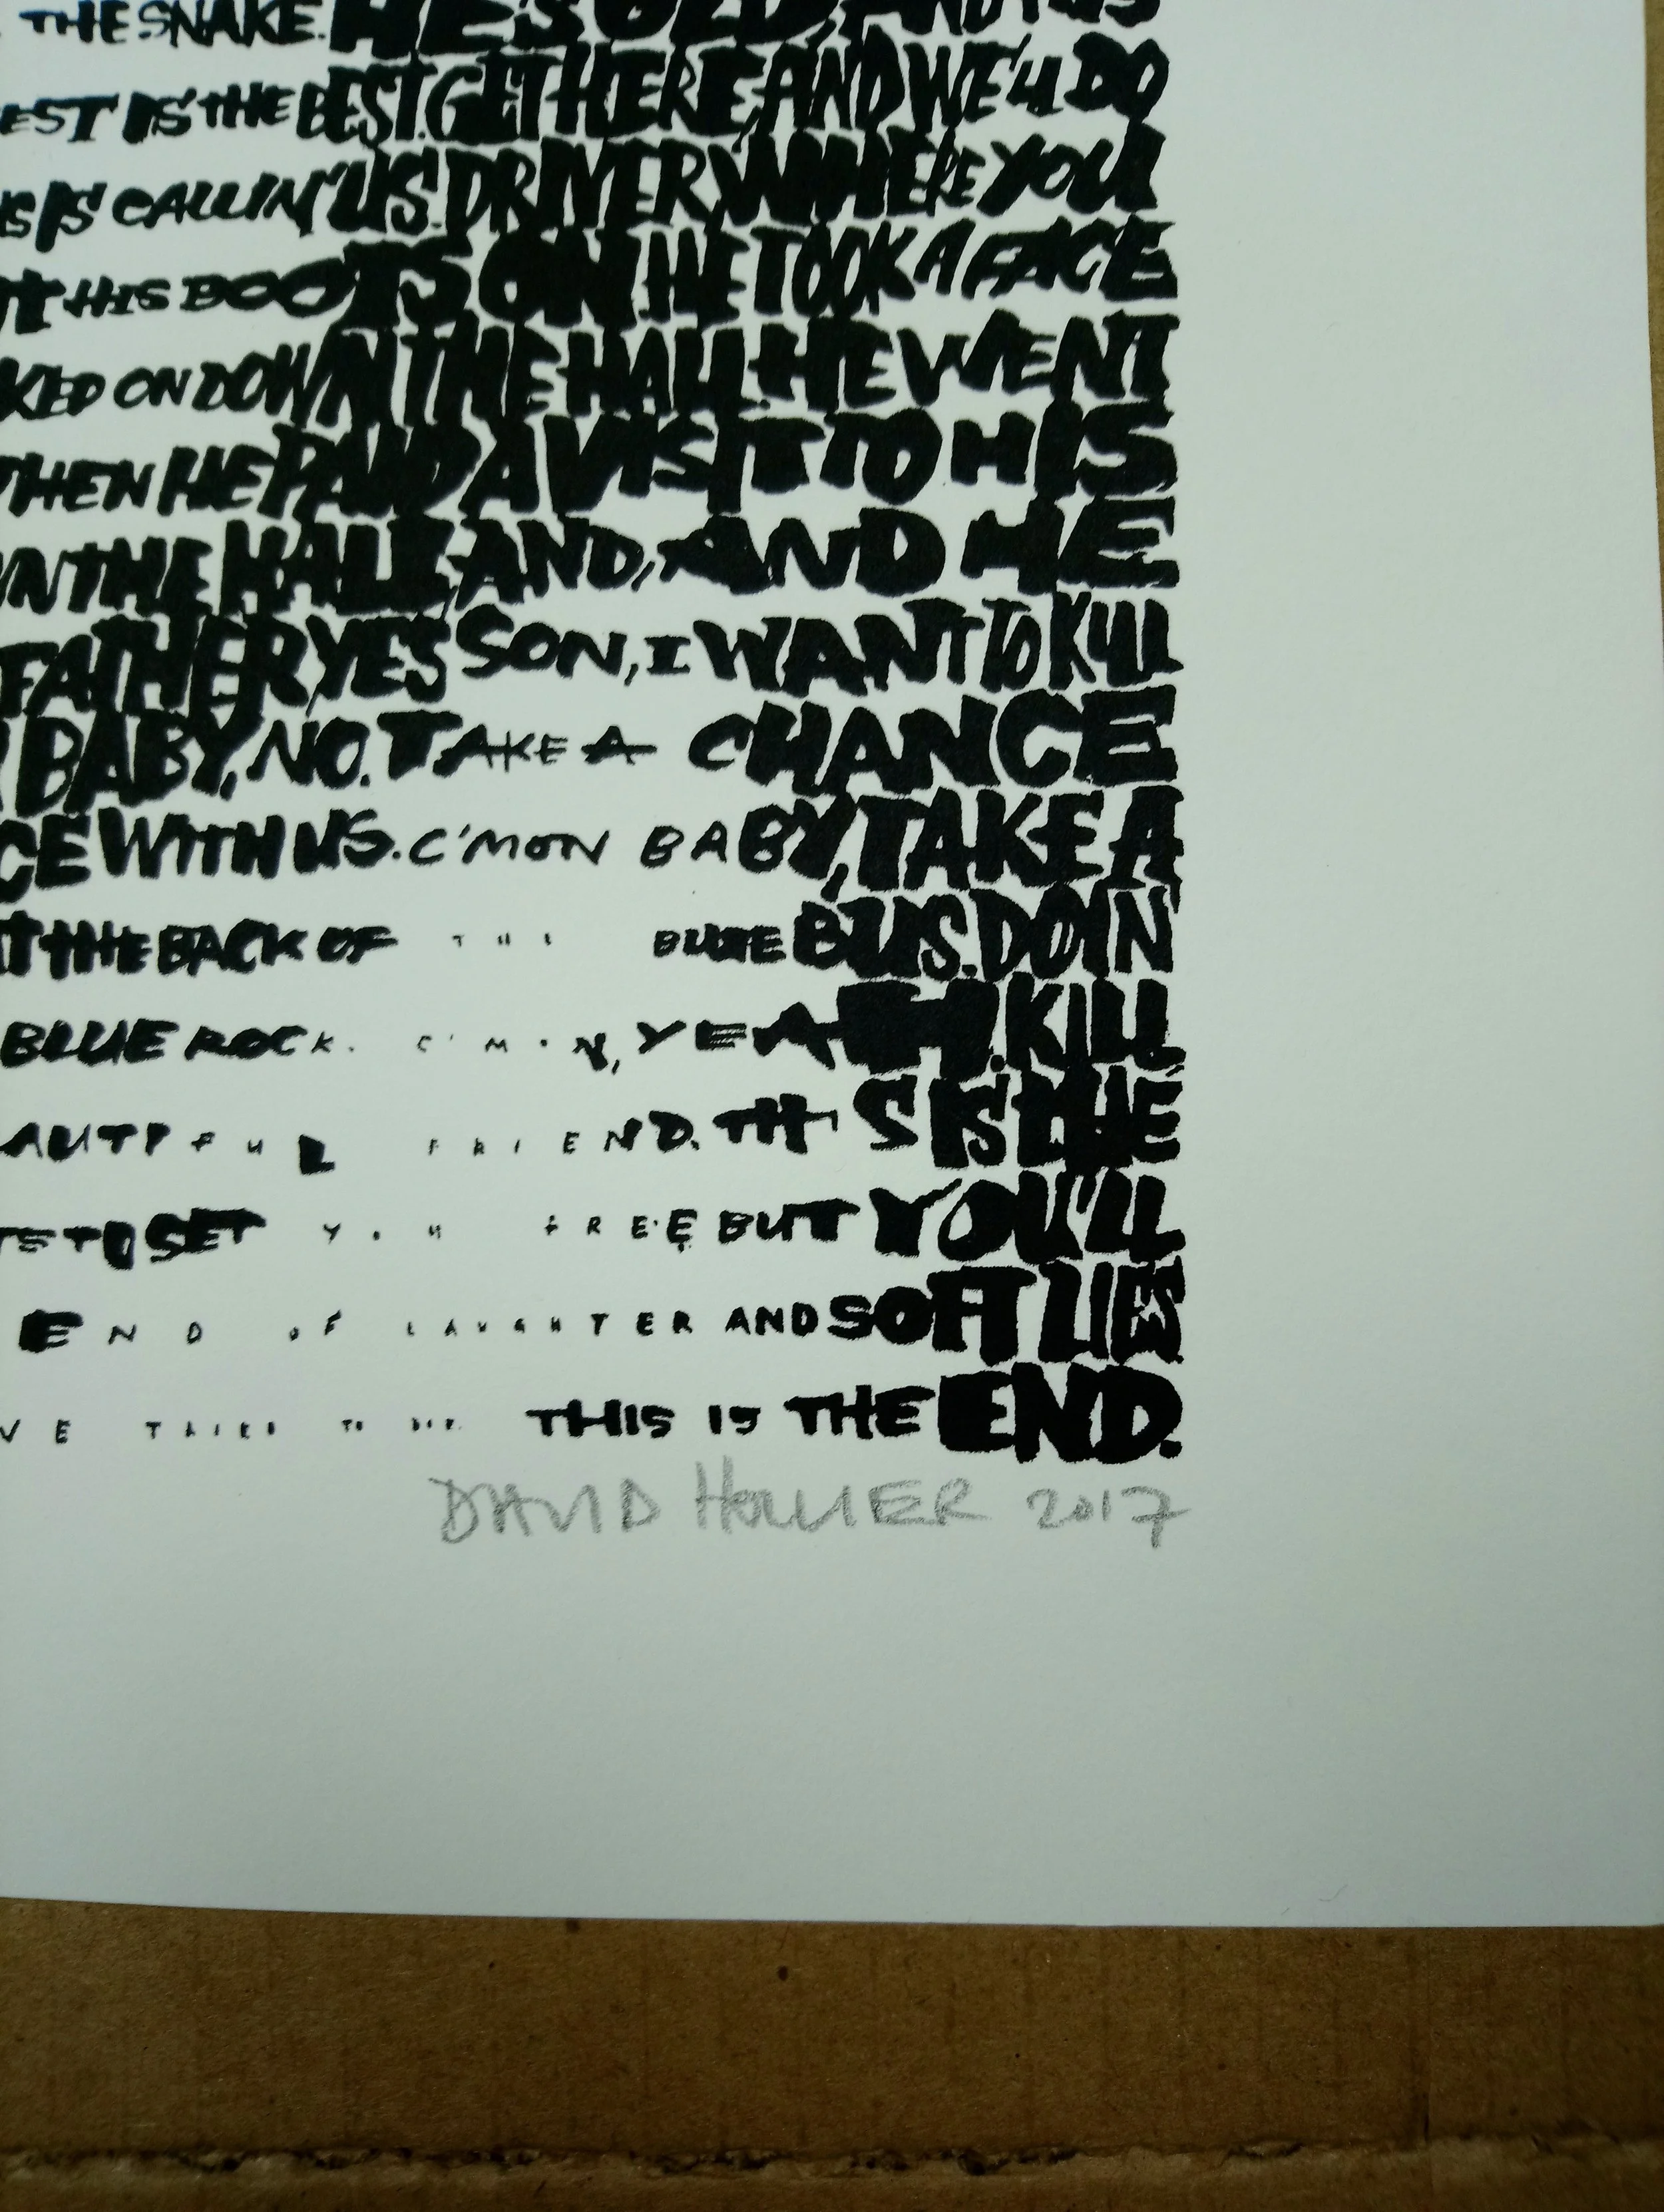 THE SNAKE. HE'S OLD, AND HIS
EST IS THE BEST. GET HERE, AND WE'LL DO
US IS CALLIN' US. DRIVER, WHERE YOU
UT HIS BOOTS ON. HE TOOK A FACE
KED ON DOWN THE HALL. HE WENT
THEN HE PAID A VISIT TO HIS
WN THE HALL, AND, AND HE
FATHER, YES SON, I WANT TO KILL
BABY, NO. TAKE A CHANCE
CE WITH US. C'MON BABY, TAKE A
T THE BACK OF THE BLUE BUS. DOIN
BLUE ROCK. C'MON, YEAH. KILL,
AUTIFUL FRIEND. THIS IS THE
TS TO SET YOU FREE BUT YOU'LL
END OF LAUGHTER AND SOFT LIES
WE TRIED TO DIE. THIS IS THE END.
DAVID HOLLIER 2017